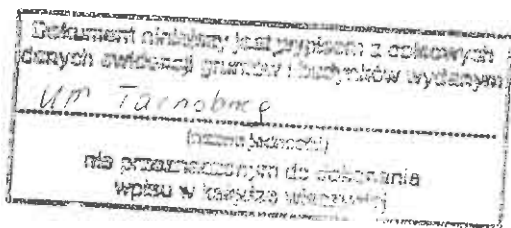 Dokument niniejszy jest wypisem z opisowych
danych ewidencji gruntów i budynków wydanym
UM Tarnobrzeg
(nazwa jednostki)
nie przeznaczonym do dokonania
wpisu w księdze wieczystej